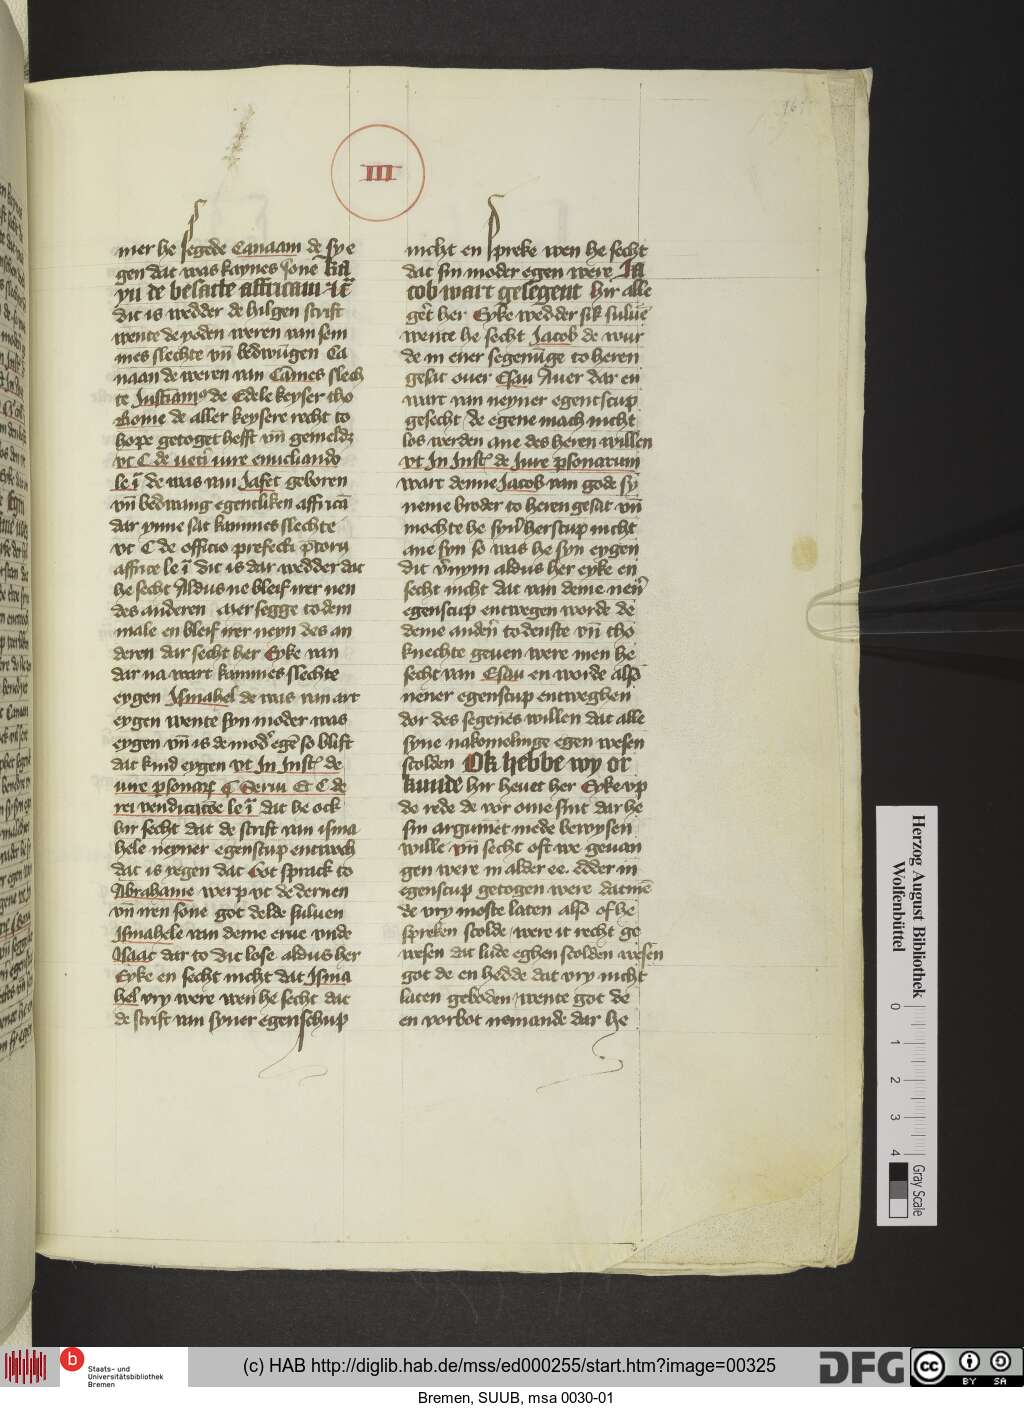 III
mer he segede Canaam de sy e
gen dat was kaynes sone Ka
yn de besatte affricam
dit is wedder de hilgen scrift
wente de yoden weren van sem
mes slechte vn̄ bedwūgen Ca
naan de weren van Cāmes slech
te Justiani⁹ de Edele keyser tho
Rome de aller keysere recht to
hope getoget hefft vn̄ gemeldꝫ
vt C de veti iure enucliando
le ī de was van Jafet geboren
vn̄ bedwang egentliken affricā
dar ynne sat kammes slechte
vt C de officio prefecti p̄tory
affrice le ī dit is dar wedder dat
he secht Aldus ne bleif irer nen
des anderen Aver segge to dem
male en bleif irer neyn des an
deren dar secht her Eyke van
dar na wart kammes slechte
eygen Ismahel de was van art
eygen wente syn moder was
eygen vn̄ is de mod᷑ egē so blift
dat kind eygen vt In Inst̄ de
iure psonaꝝ C Seruu Et C de
rei vendicatōe le ī dit he ock
hir secht dat de scrift van isma
hele neyner egenscup entwoch
dat is yegen dat Got sprack to
Abrahame werp vt de dernen
vn̄ iren sone got delde suluen
Ismahele van deme erue vnde
Isaac dar to dit lose aldus her
Eyke en secht nicht dat Isma
hel vry were wen he secht dat
de scrift van syner egenschup
nicht en spreke wen he secht
dat sin moder egen were Ja
cob wart gesegent hir alle
get̄ her Eyke wedder sik suluē
wente he secht Jacob de wur
de in ener segenūge to heren
gesat ouer Esau Auer dar en
wart van neyner egentscup
gesecht de egene mach nicht
los werden ane des heren willen
vt In Inst̄ de Jure psonarum
wart denne Jacob van gode sȳ
neme broder to heren gesat vn̄
mochte he syn̄ herscup nicht
ane syn so was he syn eygen
dit v̄nym aldus her eyke en
secht nicht dat van deme nen̄
egenscup entwegen worde de
deme anderī to denste vn̄ tho
knechte geuen were men he
secht van Esau en worde alsō
nener egenscup entweghen
dor des segenēs willen dat alle
syne nakomelinge egen wesen
scolden Ok hebbe wy or
kunde hir heuet her Eyke vp
de rede de vor ome sint dar he
sin argumēt mede bewysen
wille vn̄ secht oft we geuan
gen were in alder ee. edder in
egenscup getogen were datmē
de vry moste laten alsō of he
spreken scolde were it recht ge
wesen dat lude eghen scolden wesen
got de en hedde dat vry nicht
laten geboden wente got de
en vorbot nemande dar he
Herzog August Bibliothek
Wolfenbüttel
0 1 2 3 4
Gray Scale
b
Staats- und
Universitätsbibliothek
Bremen
(c) HAB http://diglib.hab.de/mss/ed000255/start.htm?image=00325
DFG
cc BY SA
Bremen, SUUB, msa 0030-01